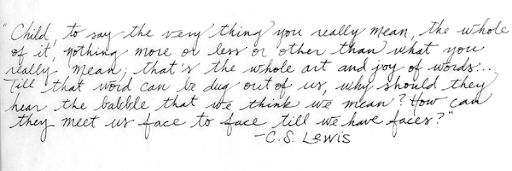 "Child, to say the very thing you really mean, the whole
of it, nothing more or less or other than what you
really mean; that's the whole art and joy of words...
Till that word can be dug out of us, why should they
hear the babble that we think we mean? How can
they meet us face to face till we have faces?"
-C.S. Lewis